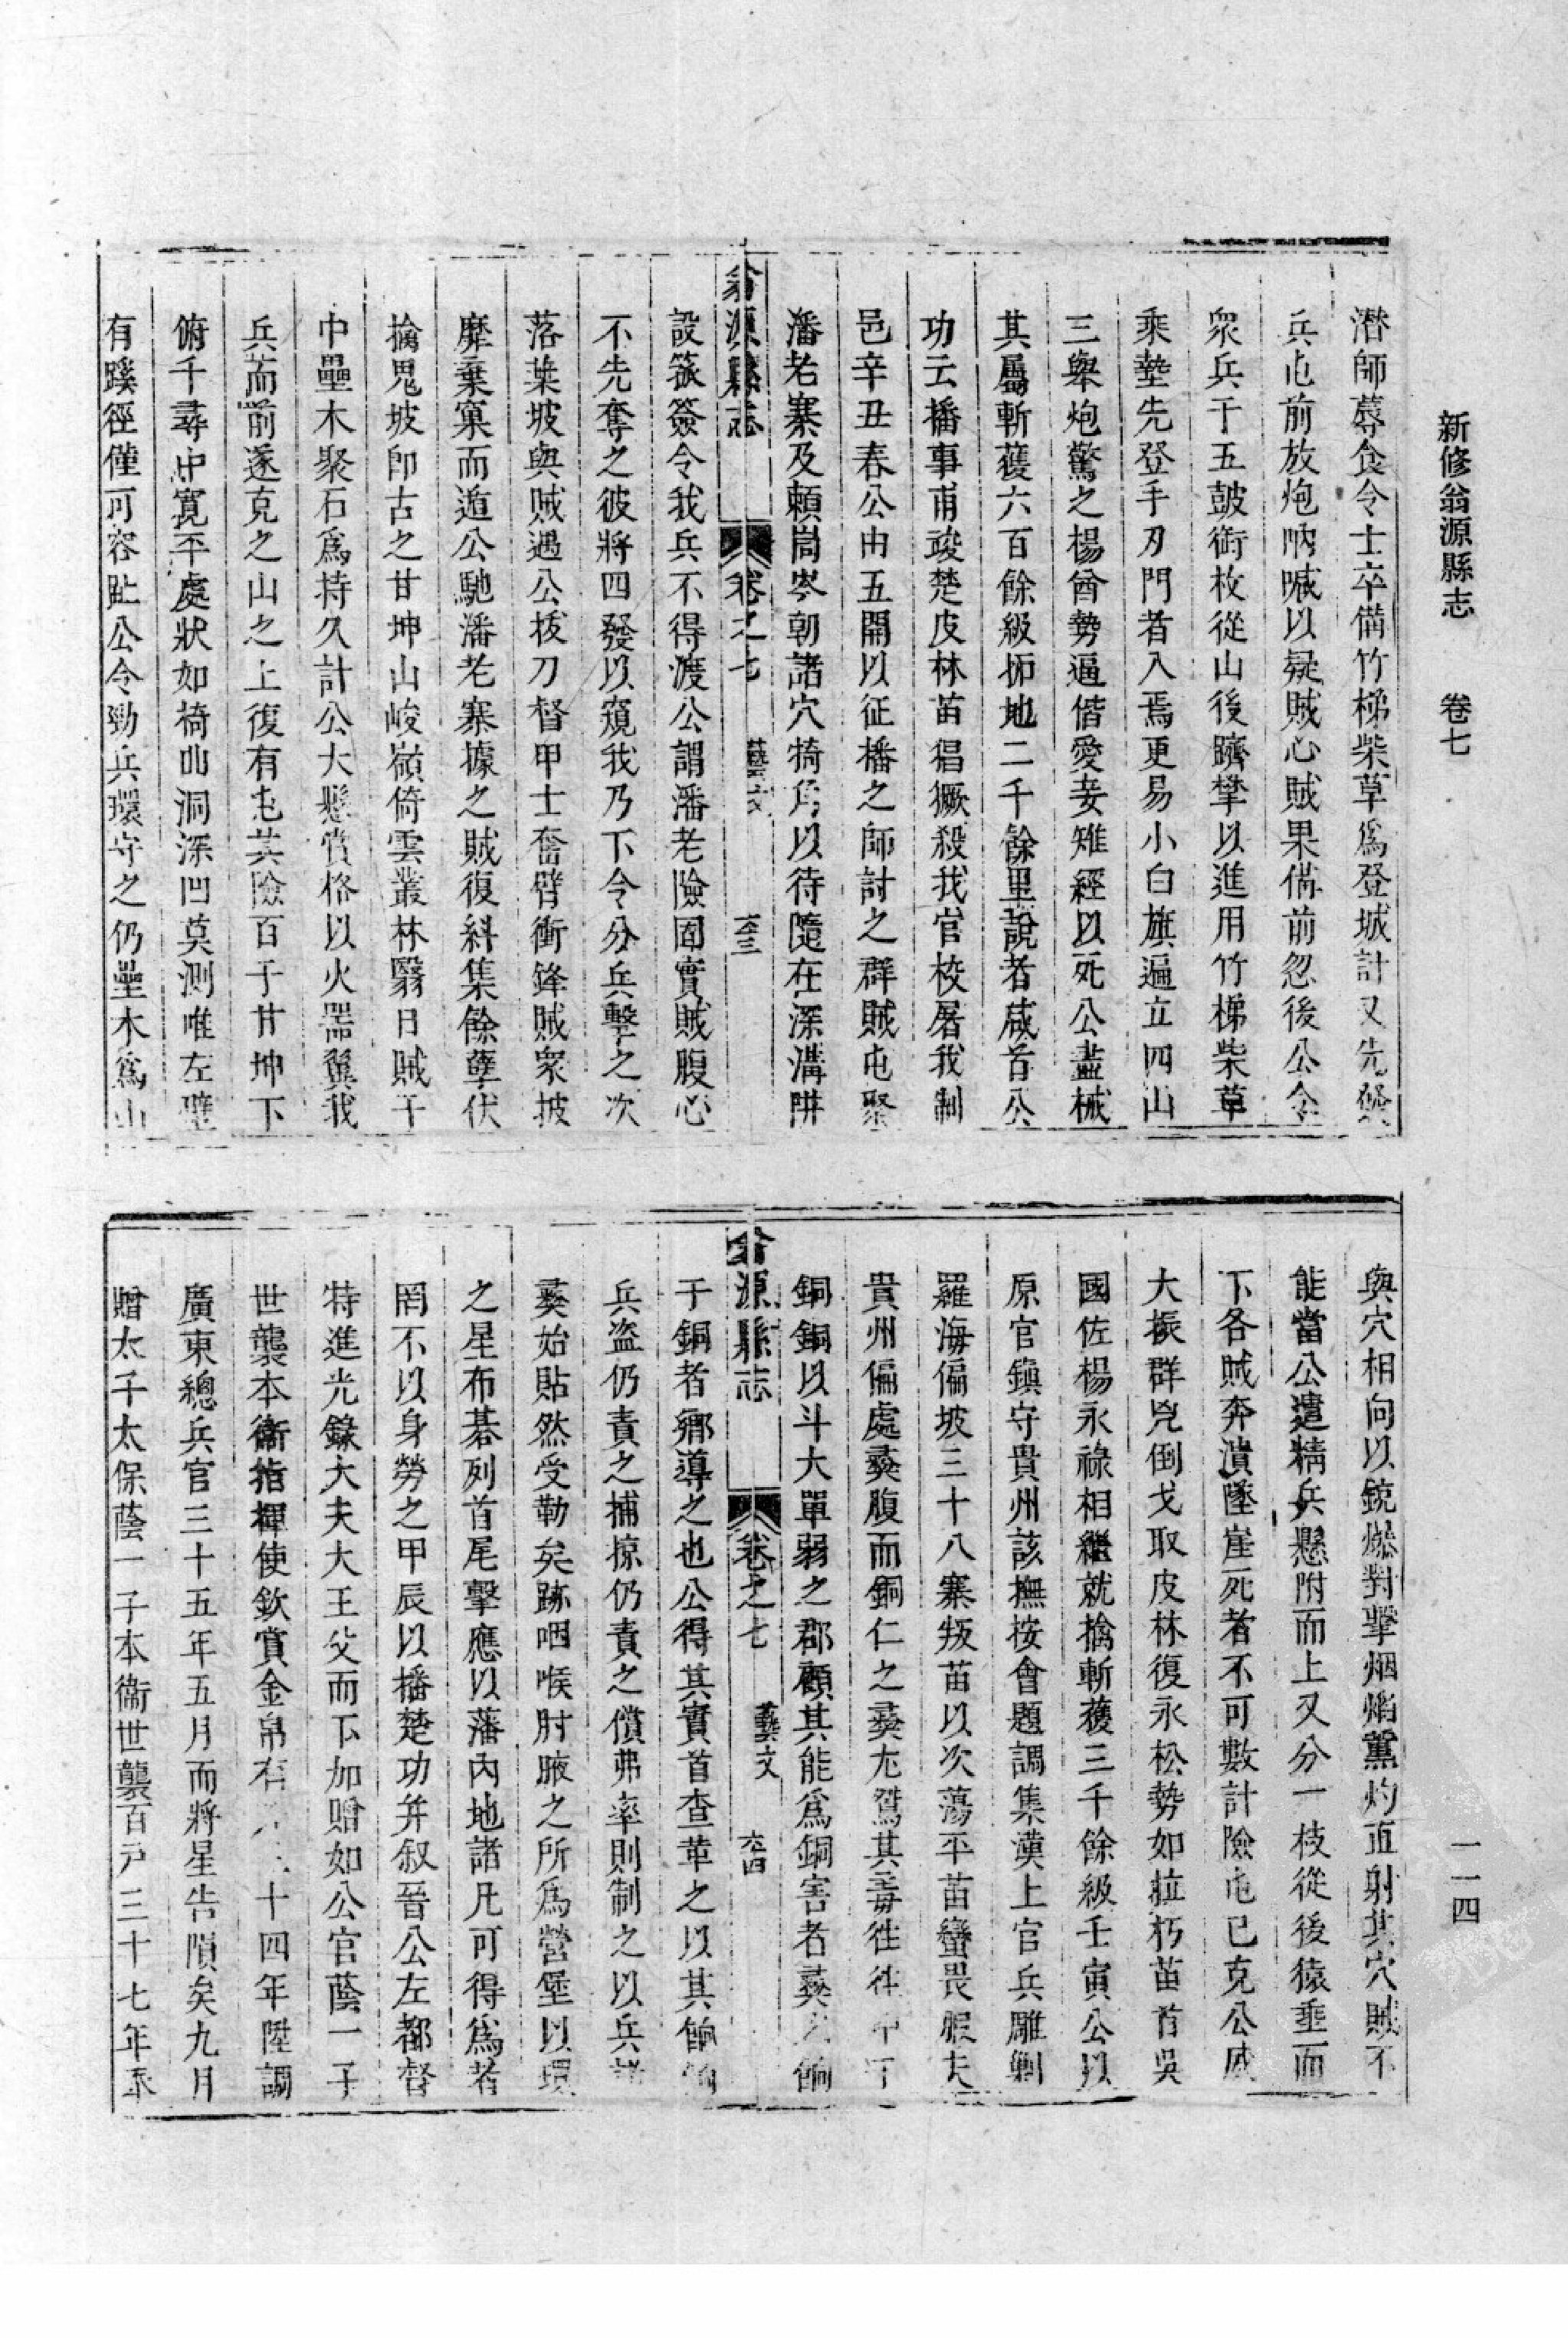 新修翁源縣志　卷七
一一四
潛師蓐食令士卒備竹梯柴草爲登城計又先發
兵屯前放炮吶喊以疑賊心賊果俻前忽後公令
衆兵于五皷銜枚從山後躋攀以進用竹梯柴草
乘墊先登手刃門者入焉更易小白旗遍立四山
三舉炮驚之楊酋勢逼偕愛妾雉經以死公盡械
其屬斬獲六百餘級拓地二千餘里說者咸首公
功云播事甫竣楚皮林苗猖獗殺我官校屠我制
邑辛丑春公由五開以征播之師討之群賊屯聚
潘老寨及賴崗岑朝諸穴犄角以待隨在深溝阱
翁源縣志　卷之七　藝文　六三
設簽令我兵不得渡公謂潘老險固實賊腹心
不先奪之彼將四發以窺我乃下令分兵擊之次
落葉坡與賊遇公拔刀督甲士奮臂衝鋒賊衆披
靡棄窠而遁公馳潘老寨據之賊復糾集餘孽伏
擒鬼坡卽古之甘坤山峻嶺倚雲叢林翳日賊于
中壘木聚石爲持久計公大懸賞格以火器翼我
兵而前遂克之山之上復有屯其險百于甘坤下
俯千尋中寬平處狀如椅凷洞深凹莫測唯左壁
有蹊徑僅可容趾公令勁兵環守之仍壘木爲山
與穴相向以銃燃對擊烟焰薰灼直射其穴賊不
能當公遣精兵懸附而上又分一枝從後猿垂而
下各賊奔潰墜崖死者不可數計險屯已克公威
大振群兇倒戈取皮林復永松勢如拉朽苗首吳
國佐楊永祿相繼就擒斬獲三千餘級壬寅公以
原官鎮守貴州該撫按會題調集漢土官兵雕剿
羅海偏坡三十八寨叛苗以次蕩平苗蠻畏服夫
貴州偏處彝腹而銅仁之彝尤鴛其毒徃徃中于
銅銅以斗大單弱之郡顧其能爲銅害者彝之餉
翁源縣志　卷之七　藝文　六四
于銅者鄉導之也公得其實首查革之以其餉餉
兵盜仍責之捕掠仍責之償弗率則制之以兵諸
彝始貼然受勒矣跡咽喉肘腋之所爲營堡以環
之星布碁列首尾擊應以藩內地諸凡可得爲者
罔不以身勞之甲辰以播楚功并叙晉公左都督
特進光錄大夫大王父而下加贈如公官蔭一子
世襲本衛指揮使欽賞金帛有三十四年陞調
廣東總兵官三十五年五月而將星告隕矣九月
贈太子太保蔭一子本衛世襲百戶三十七年承